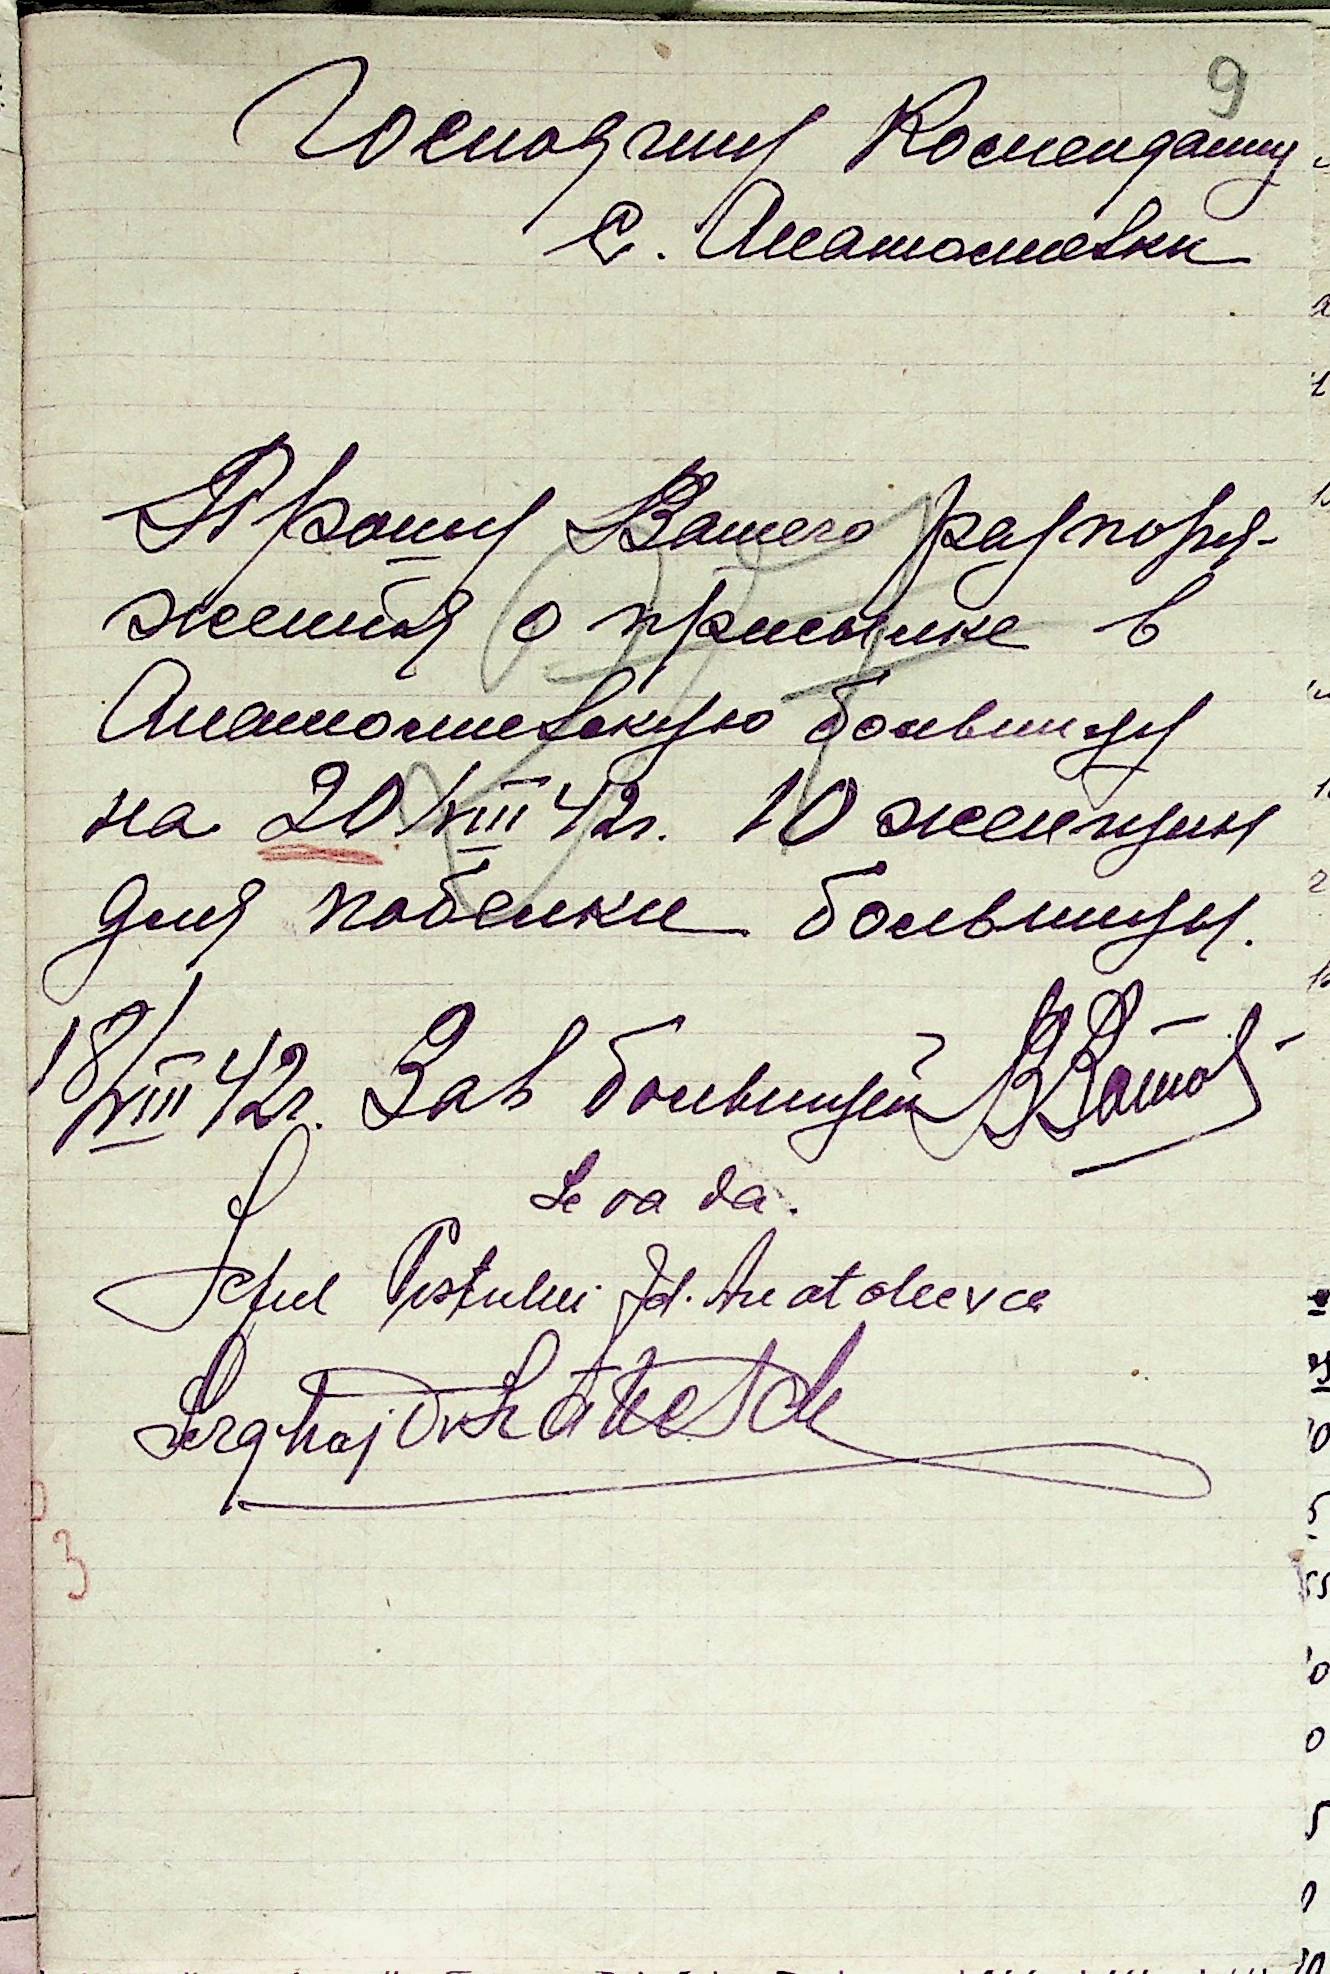 9
Господину Комендант у
с. Анатолиевки
Прошу Вашего распоря-
жения о присылке в
Анатолиевскую больницу
на 20/VIII 42г. 10 женщин
для побелки больницы.
18/VIII 42г. Зав больницей
Se va da.
Șeful Postului Jd. Anatolievca
3